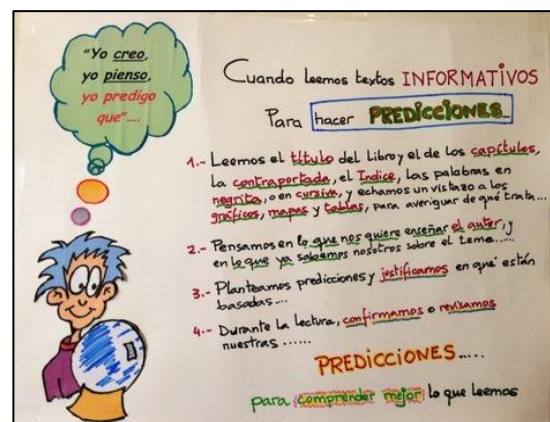 "Yo creo,
yo pienso,
yo predigo
que"....
Cuando leemos textos INFORMATIVOS
Para hacer PREDICCIONES...
1.- Leemos el título del Libro y el de los capítulos,
la contraportada, el Indice, las palabras en
negrita, o en cursiva, y echamos un vistazo a los
gráficos, mapas y tablas, para averiguar de qué trata...
2.- Pensamos en lo que nos quiere enseñar el autor, y
en lo que ya sabemos nosotros sobre el tema......
3.- Planteamos predicciones y justificamos en qué están
basadas....
4.- Durante la lectura, confirmamos o revisamos
nuestras ......
PREDICCIONES....
para comprender mejor lo que leemos